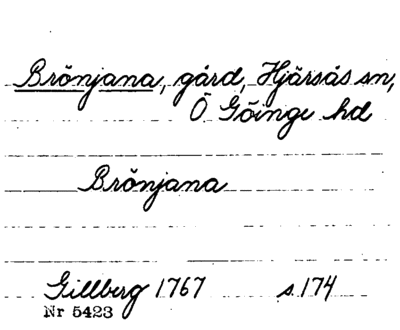 Brönjana, gård, Hjärsås sn,
Ö Göinge hd
Brönjana
Gillberg 1767 s. 174
Nr 5423